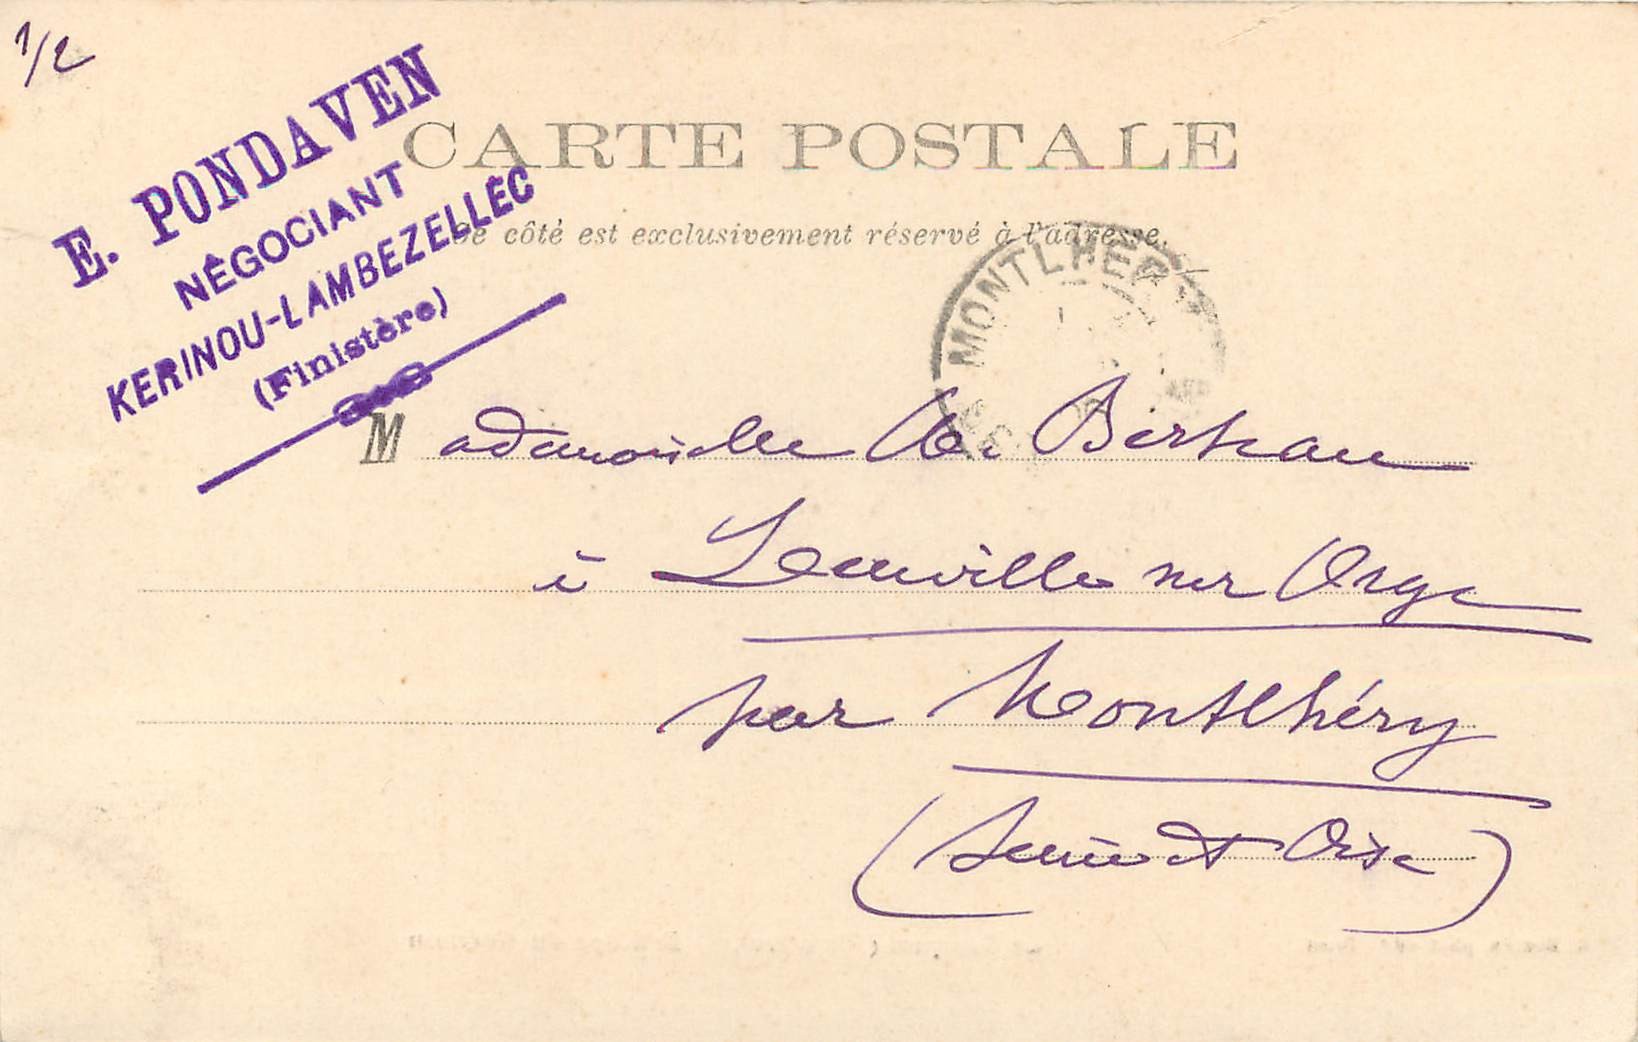 1/2
E. PONDAVEN
NÉGOCIANT
KERINOU-LAMBEZELLEC
(Finistère)
CARTE POSTALE
Ce côté est exclusivement réservé à l'adresse.
MONTLHERY
Mademoiselle Berteau
à Leuville sur Orge
par Montlhéry
(Seine et Oise)